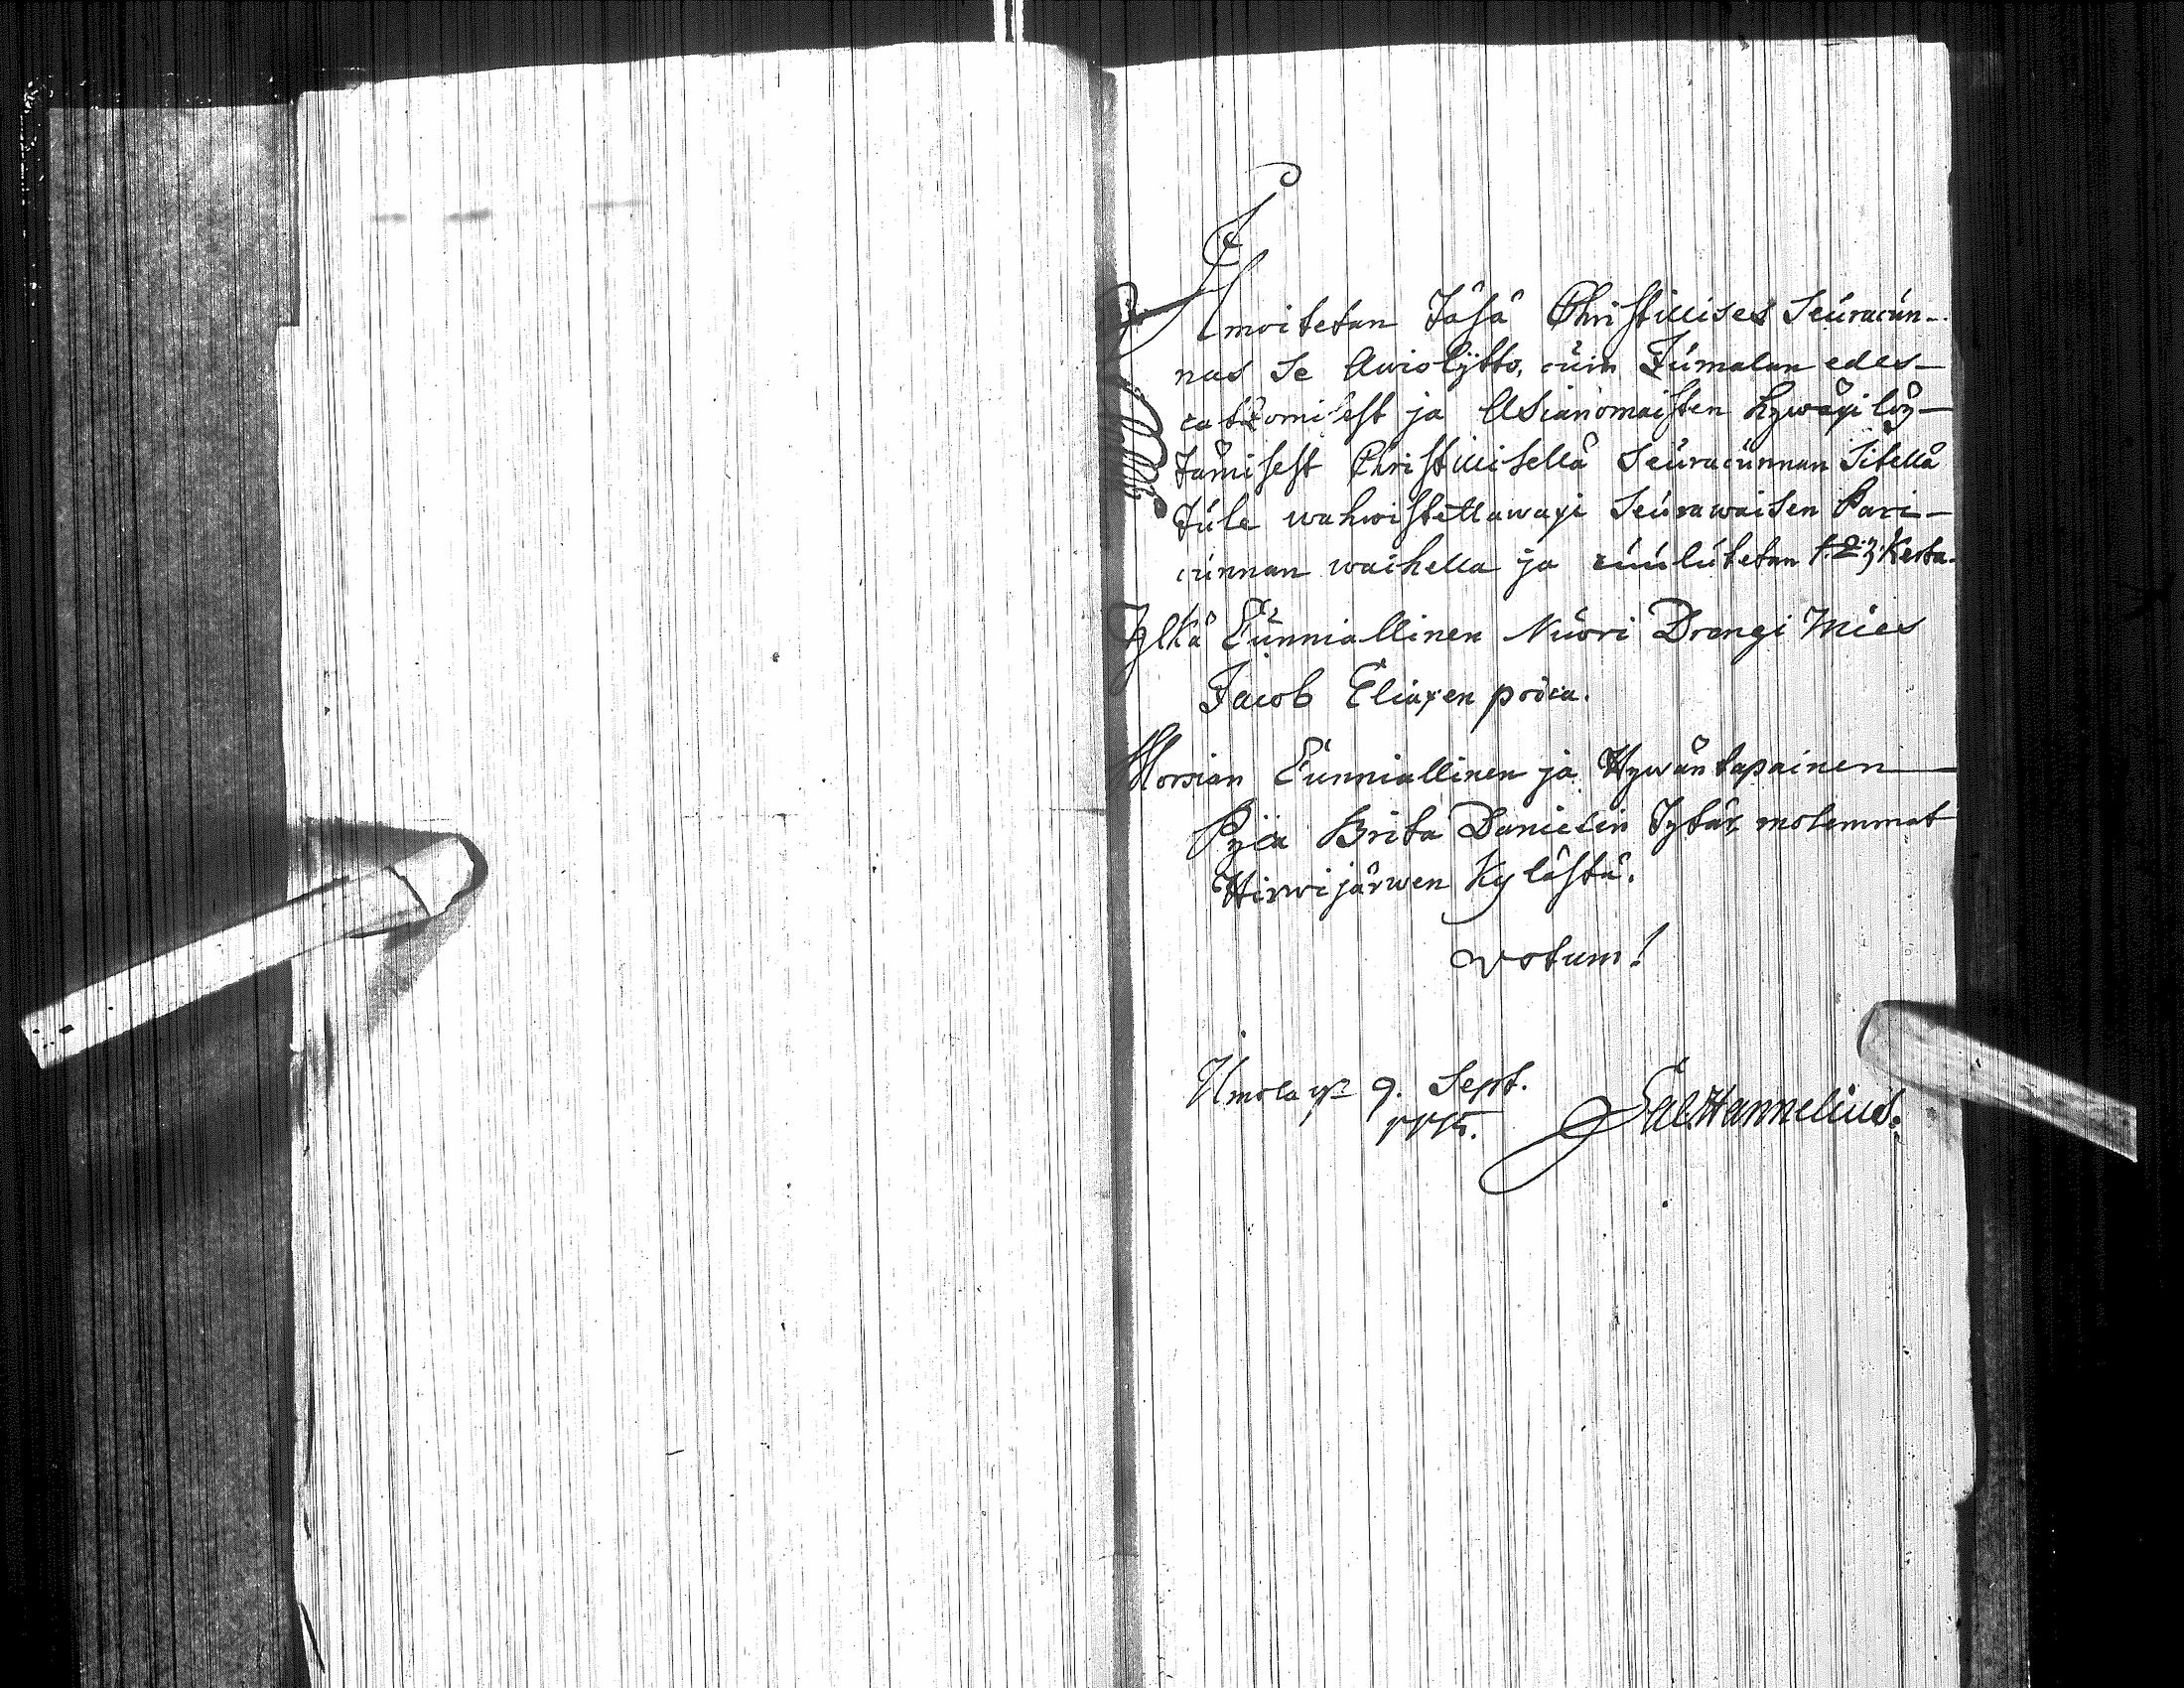 Ilmoitetan Täsä Christillises Seuracun-
nas se Awiokytto, cuin Jumalan edes-
catzomisest ja Asianomaisten hywäxi löy-
tämisest Christillisellä Seuracunnan Sitellä
Tule wahwistettawaxi Seurawaisen Pari-
cunnan waihella ja cuulutetan 1. 2. 3. Kerta.
Ylkä Cunniallinen Nuori Drengi Mies
Jacob Eliaxen poica.
Morsian Cunniallinen ja Hywäntapainen
Pijca Brita Danielin Tytär, molemmat
Hirwijärwen Kylästä.
Votum!
9. Sept.
1775.
Sal. Hannelius.